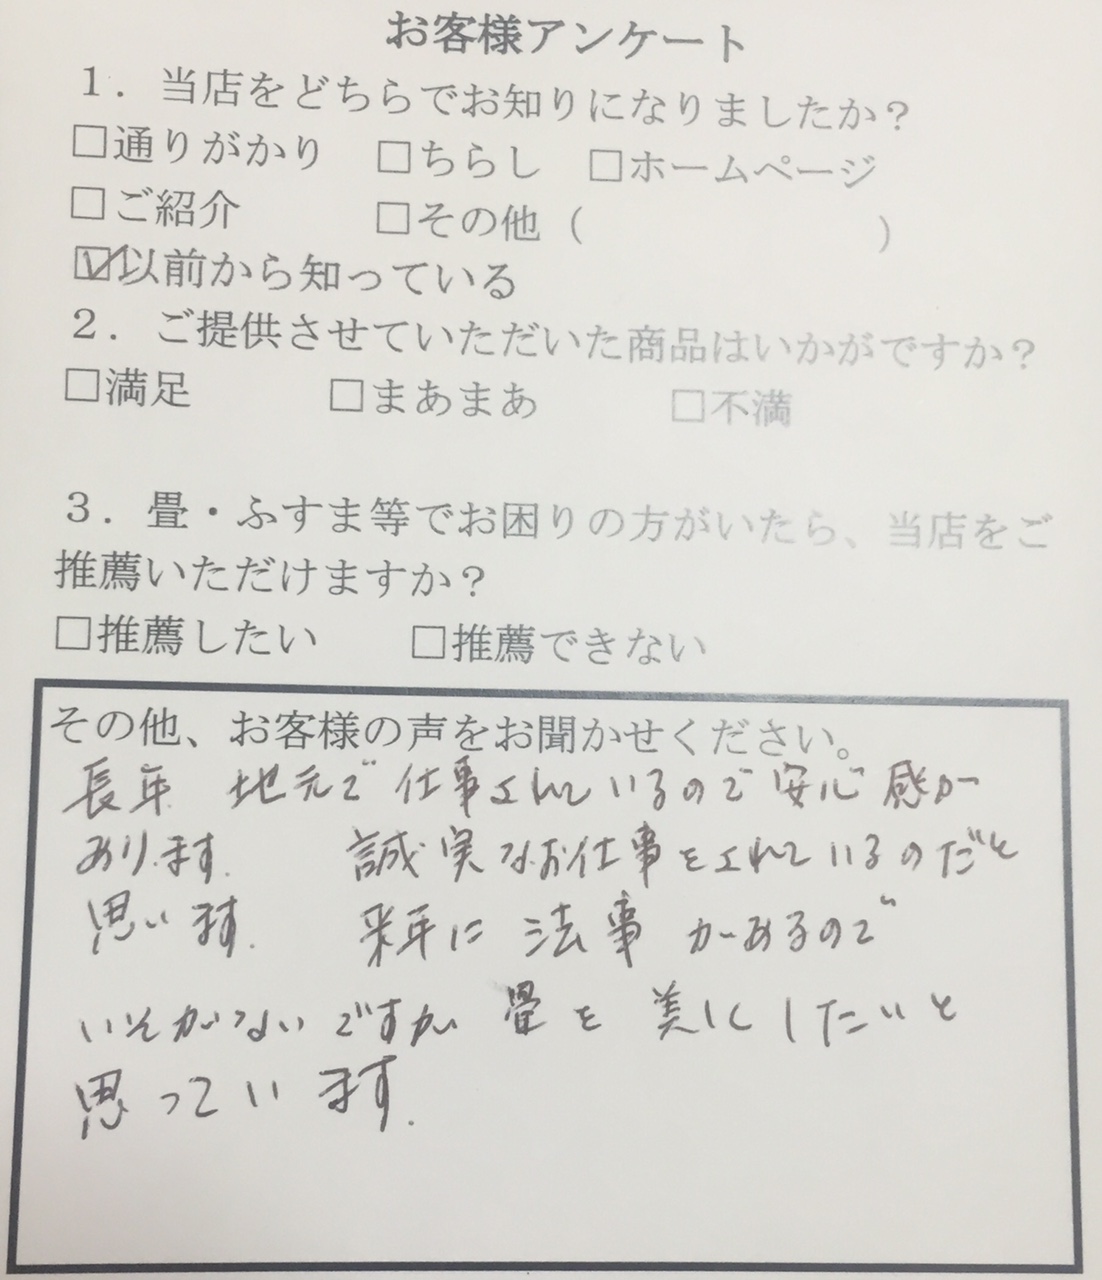 お客様アンケート
１．当店をどちらでお知りになりましたか？
□通りがかり □ちらし □ホームページ
□ご紹介 □その他（ ）
☑以前から知っている
２．ご提供させていただいた商品はいかがですか？
□満足 □まあまあ □不満
３．畳・ふすま等でお困りの方がいたら、当店をご
推薦いただけますか？
□推薦したい □推薦できない
その他、お客様の声をお聞かせください。
長年 地元で仕事されているので安心感が
あります. 誠実なお仕事をされているのだと
思います. 来年に法事があるので
いそがないですが 畳を美しくしたいと
思っています.